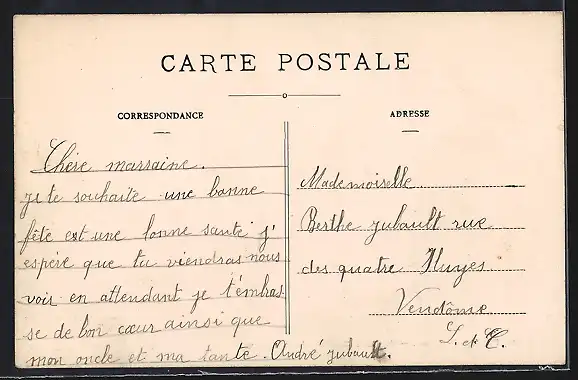 CARTE POSTALE
CORRESPONDANCE
Chère marraine.
je te souhaite une bonne
fête est une bonne santé j'
espère que tu viendras nous
voir en attendant je t'embras
se de bon cœur ainsi que
mon oncle et ma tante. André Jubault.
ADRESSE
Mademoiselle
Berthe Jubault rue
des quatre Huyes
Vendôme
L. et C.